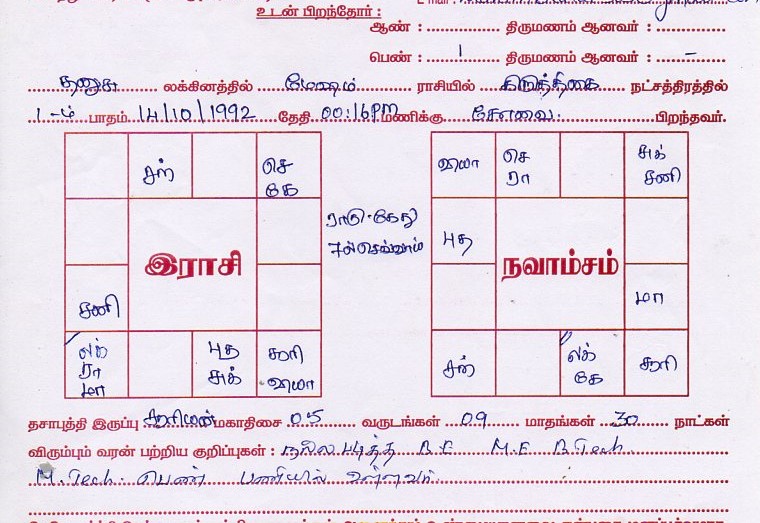 உடன் பிறந்தோர் :
ஆண் : ............... திருமணம் ஆனவர் : ..............
பெண் : ......1........ திருமணம் ஆனவர் : ......–......
தனுசு லக்கினத்தில் மேஷம் ராசியில் கிருத்திகை நட்சத்திரத்தில்
1-ம் பாதம் 14/10/1992 தேதி 00:16PM மணிக்கு கோவை பிறந்தவர்.
சந் செ கே
வியா செ ரா சுக் சனி
ராகு-கேது
7ல் செவ்வாய்
புத
இராசி
நவாம்சம்
சனி
மா
லக் ரா மா புத சுக் சூரி வியா
சந் லக் கே சூரி
தசாபுத்தி இருப்பு சூரியன் மகாதிசை 05 வருடங்கள் 09 மாதங்கள் 30 நாட்கள்
விரும்பும் வரன் பற்றிய குறிப்புகள் : நல்ல படித்த B.E M.E B.Tech
M.Tech. பெண் பணியில் உள்ளவர்.